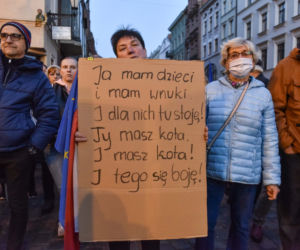 Ja mam dzieci
i mam wnuki
I dla nich tu stoję!
Ty masz kota,
I masz kota!
I tego się boję!